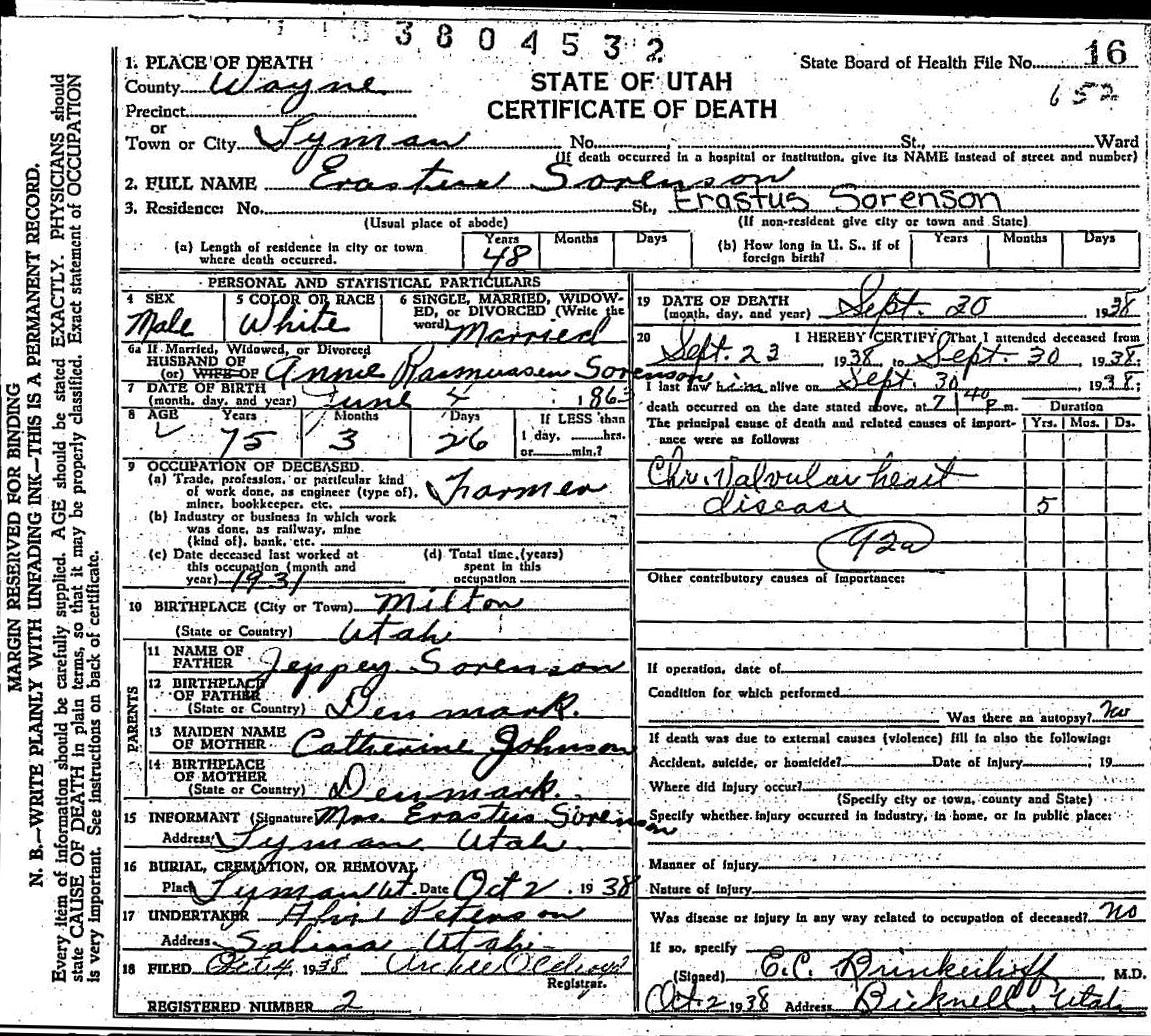 3804532
1. PLACE OF DEATH
County Wayne
Precinct
or
Town or City Lyman No. St., Ward
(If death occurred in a hospital or institution, give its NAME instead of street and number)
STATE OF UTAH
CERTIFICATE OF DEATH
State Board of Health File No. 16
652
2. FULL NAME Erastus Sorenson
3. Residence: No. St., Erastus Sorenson
(Usual place of abode) (If non-resident give city or town and State)
(a) Length of residence in city or town where death occurred. Years 48 Months Days
(b) How long in U. S., if of foreign birth? Years Months Days
PERSONAL AND STATISTICAL PARTICULARS
4 SEX Male
5 COLOR OR RACE White
6 SINGLE, MARRIED, WIDOWED, or DIVORCED (Write the word) Married
6a If Married, Widowed, or Divorced
HUSBAND OF
(or) WIFE OF Annie Rasmussen Sorenson
7 DATE OF BIRTH
(month, day, and year) June 4 1863
8 AGE Years 75 Months 3 Days 26 If LESS than
1 day, hrs.
or min.?
9 OCCUPATION OF DECEASED
(a) Trade, profession, or particular kind
of work done, as engineer (type of),
miner, bookkeeper, etc. Farmer
(b) Industry or business in which work
was done, as railway, mine
(kind of), bank, etc.
(c) Date deceased last worked at
this occupation (month and
year) 1931
(d) Total time (years)
spent in this
occupation
10 BIRTHPLACE (City or Town) Milton
(State or Country) Utah
PARENTS
11 NAME OF
FATHER Jeppey Sorenson
12 BIRTHPLACE
OF FATHER
(State or Country) Denmark.
13 MAIDEN NAME
OF MOTHER Catherine Johnson
14 BIRTHPLACE
OF MOTHER
(State or Country) Denmark.
15 INFORMANT (Signature Mrs. Erastus Sorenson
Address Lyman Utah
16 BURIAL, CREMATION, OR REMOVAL
Place Lyman Ut. Date Oct 2, 1938
17 UNDERTAKER Peterson
Address Salina Utah
18 FILED Oct 4, 1938 Archie Oldroyd
Registrar.
REGISTERED NUMBER 2
19 DATE OF DEATH
(month, day, and year) Sept. 30 1938
20 I HEREBY CERTIFY That I attended deceased from
Sept. 23 1938 to Sept. 30 1938.
I last saw him alive on Sept. 30 1938;
death occurred on the date stated above, at 7:40 p.m. Duration
The principal cause of death and related causes of importance were as follows: Yrs. Mos. Ds.
Chr. Valvular heart
disease 5
92a
Other contributory causes of importance:
If operation, date of
Condition for which performed
Was there an autopsy? no
If death was due to external causes (violence) fill in also the following:
Accident, suicide, or homicide? Date of injury , 19
Where did injury occur?
(Specify city or town, county and State)
Specify whether injury occurred in industry, in home, or in public place:
Manner of injury
Nature of injury
Was disease or injury in any way related to occupation of deceased? no
If so, specify
(Signed) E.C. Brinkerhoff M.D.
Oct. 2 1938 Address Bicknell, Utah
MARGIN RESERVED FOR BINDING
N. B.—WRITE PLAINLY WITH UNFADING INK—THIS IS A PERMANENT RECORD.
Every item of information should be carefully supplied. AGE should be stated EXACTLY. PHYSICIANS should
state CAUSE OF DEATH in plain terms, so that it may be properly classified. Exact statement of OCCUPATION
is very important. See instructions on back of certificate.